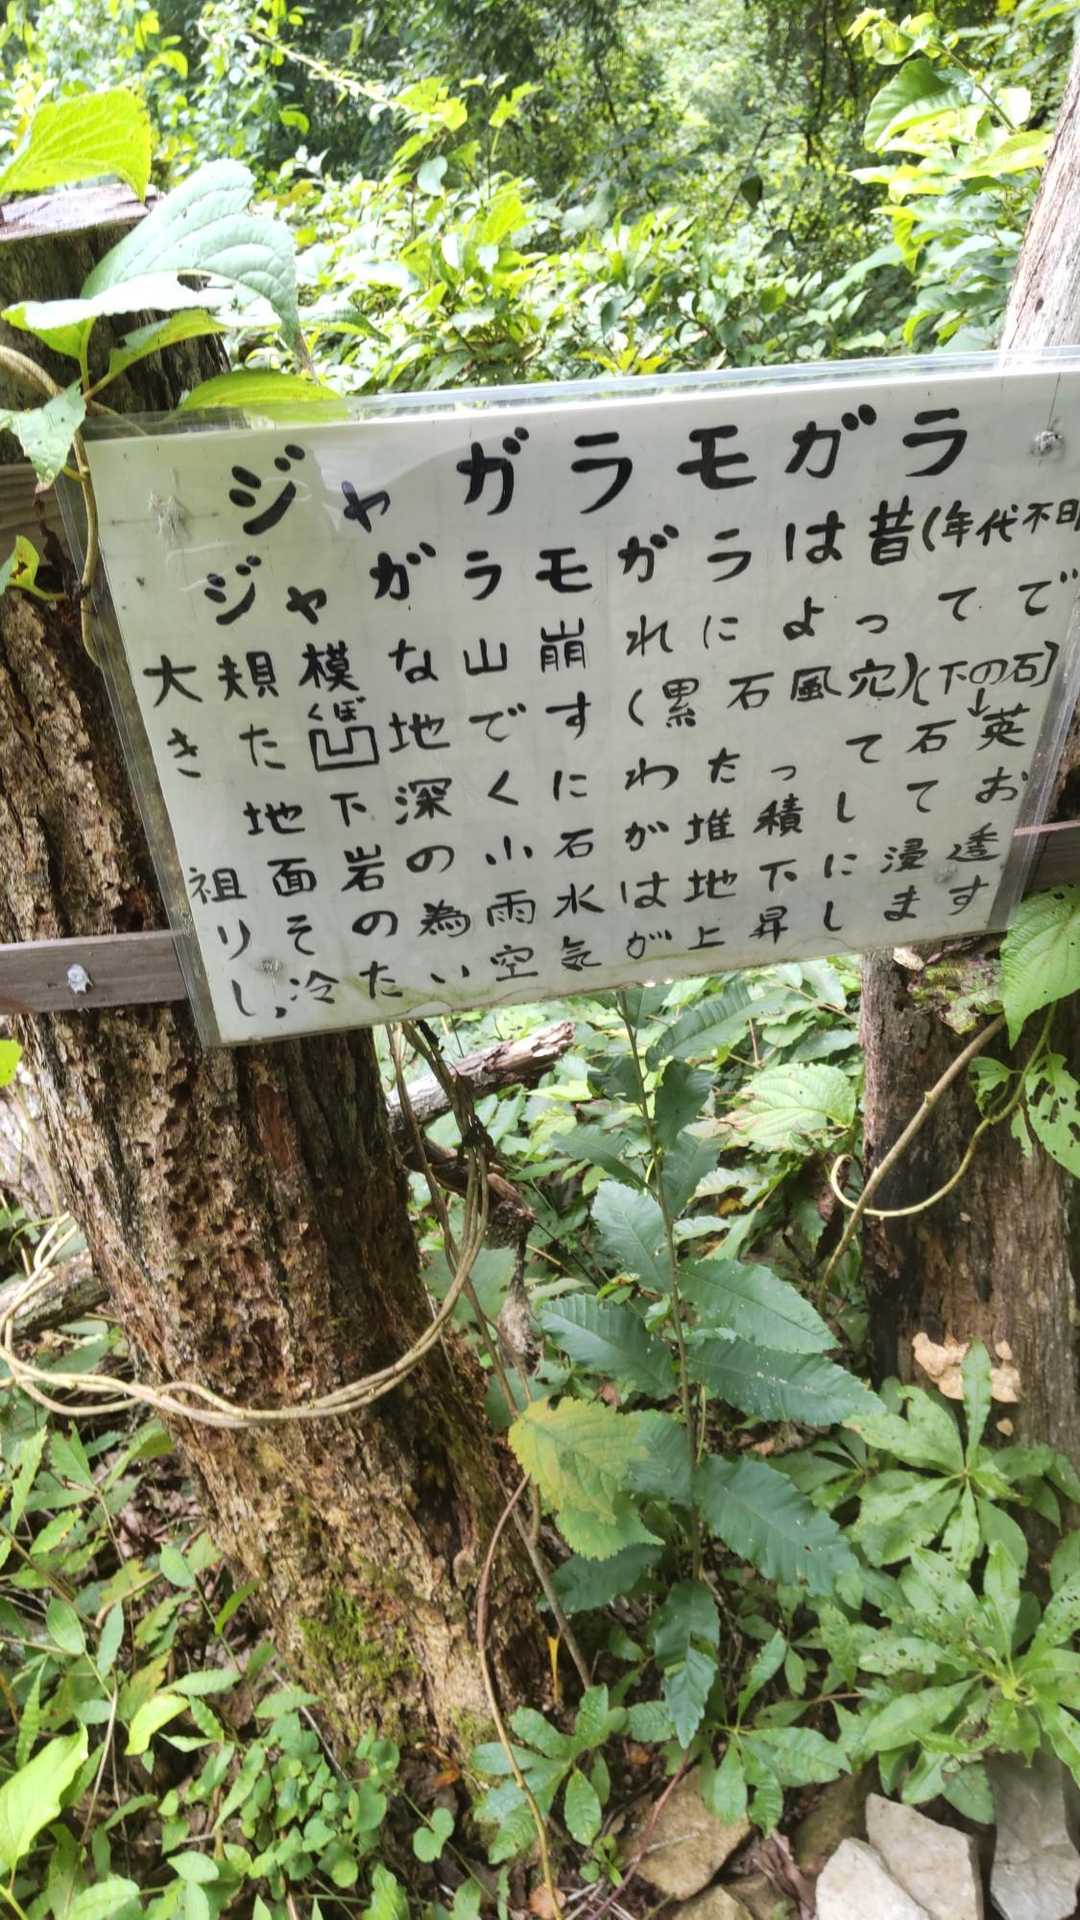 ジャガラモガラ
ジャガラモガラは昔(年代不明
大規模な山崩れによってで
きた凹地です(累石風穴)(下の石)
くぼ
地下深くにわたって石英
祖面岩の小石が堆積してお
りその為雨水は地下に浸透
し,冷たい空気が上昇します